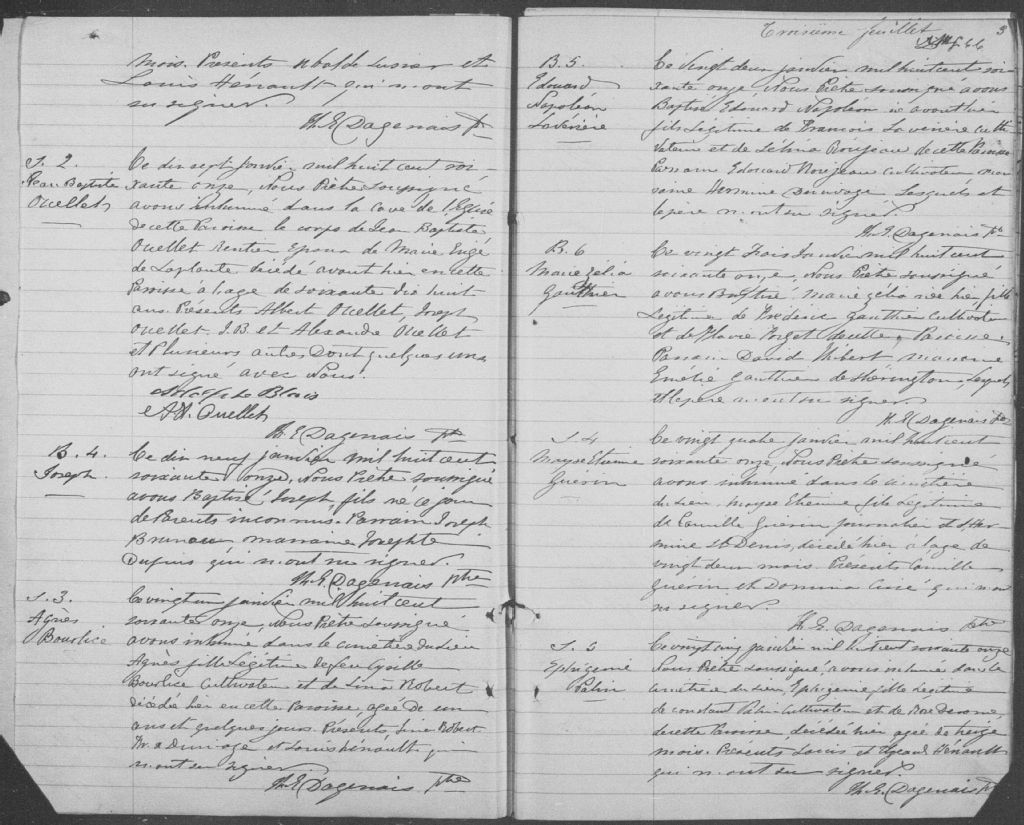 mois. Présents
Louis Hénault qui n'ont
su signer.
Th. E. Dagenais Ptre
S. 2.
Jean Baptiste
Ouellet
Ce dix sept janvier mil huit cent soi-
xante onze, Nous Prêtre soussigné
avons inhumé dans la cave de l'Eglise
de cette Paroisse le corps de Jean Baptiste
Ouellet rentier Epoux de Marie
de Laplante, décédé avant hier en cette
Paroisse à l'age de soixante dix huit
ans. Présents Albert Ouellet, Joseph
Ouellet, J. B. et Alexandre Ouellet
et Plusieurs autres Dont quelques uns
ont signé avec Nous.
Adolphe Blais
A. A. Ouellet
Th. E. Dagenais Ptre
B. 4.
Joseph
Ce dix neuf janvier mil huit cent
soixante onze, Nous Prêtre soussigné
avons Baptisé Joseph, fils né ce jour
de Parents inconnus. Parrain Joseph
Bruneau marraine Josephte
Dupuis qui n'ont su signer.
Th. E. Dagenais Ptre
S. 3.
Agnès
Bourlice
Ce vingt un janvier mil huit cent
soixante onze, Nous Prêtre soussigné
avons inhumé dans le cimetière du lieu
Agnès fille Légitime de feu Cyrille
Bourlice Cultivateur et de Lina Robert
décédée hier en cette Paroisse, agée de un
ans et quelques jours. Présents, Robert
et Louis Hénault qui
n'ont su signer.
Th. E. Dagenais Ptre
Troisième feuillet 3
B. 5
Edouard
Napoléon
Laverière
Ce vingt deux janvier mil huit cent soi-
xante onze, Nous Prêtre soussigné avons
Baptisé Edouard Napoléon né avant hier
fils Légitime de François Laverière culti-
vateur et de Zélina Rougeau de cette Paroisse
Parrain Edouard Rougeau cultivateur mar-
raine Hermine Lesquels et
le père n'ont su signer.
Th. E. Dagenais Ptre
B. 6
Marie Zélia
Gauthier
Ce vingt trois Janvier mil huit cent
soixante onze, Nous Prêtre soussigné
avons Baptisé Marie Zélia née hier fille
Légitime de Fréderic Gauthier Cultivateur
et de Flavie Forget de cette Paroisse.
Parrain David Hibert marraine
Emélie Gauthier de Lesquels
et le père n'ont su signer.
Th. E. Dagenais Ptre
S. 4
Moyse Etienne
Guérin
Ce vingt quatre janvier mil huit cent
soixante onze, Nous Prêtre soussigné
avons inhumé dans le cimetière
du lieu, Moyse Etienne fils Légitime
de Camille Guérin journalier et d'Her-
mine St Denis, décédé hier à l'age de
vingt deux mois. Présents Camille
Guérin et qui n'ont
su signer.
Th. E. Dagenais Ptre
S. 5
Ephigenie
Patin
Ce vingt cinq janvier mil huit cent soixante onze
Nous Prêtre soussigné, avons inhumé dans le
cimetière du lieu, Ephigenie fille Légitime
de Constant Patin Cultivateur et de
de cette Paroisse décédée hier agée de treize
mois. Présents Louis et Hénault
qui n'ont su signer.
Th. E. Dagenais Ptre